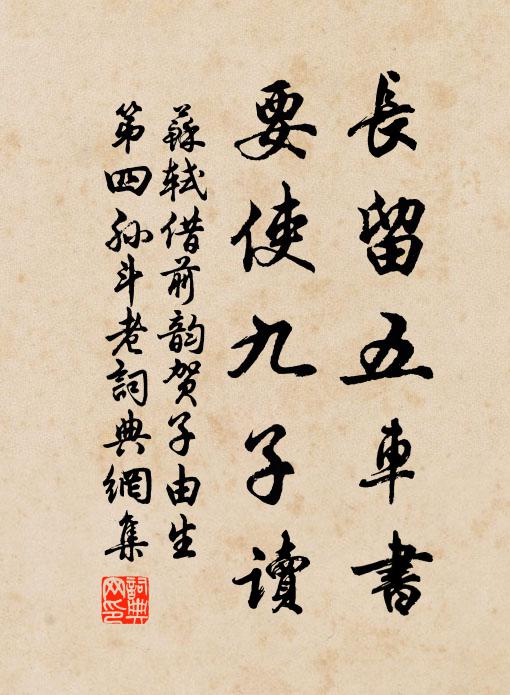 長留五車書
要使九子讀
蘇軾借前韵賀子由生
第四孙斗老詞典網集
詞典网印